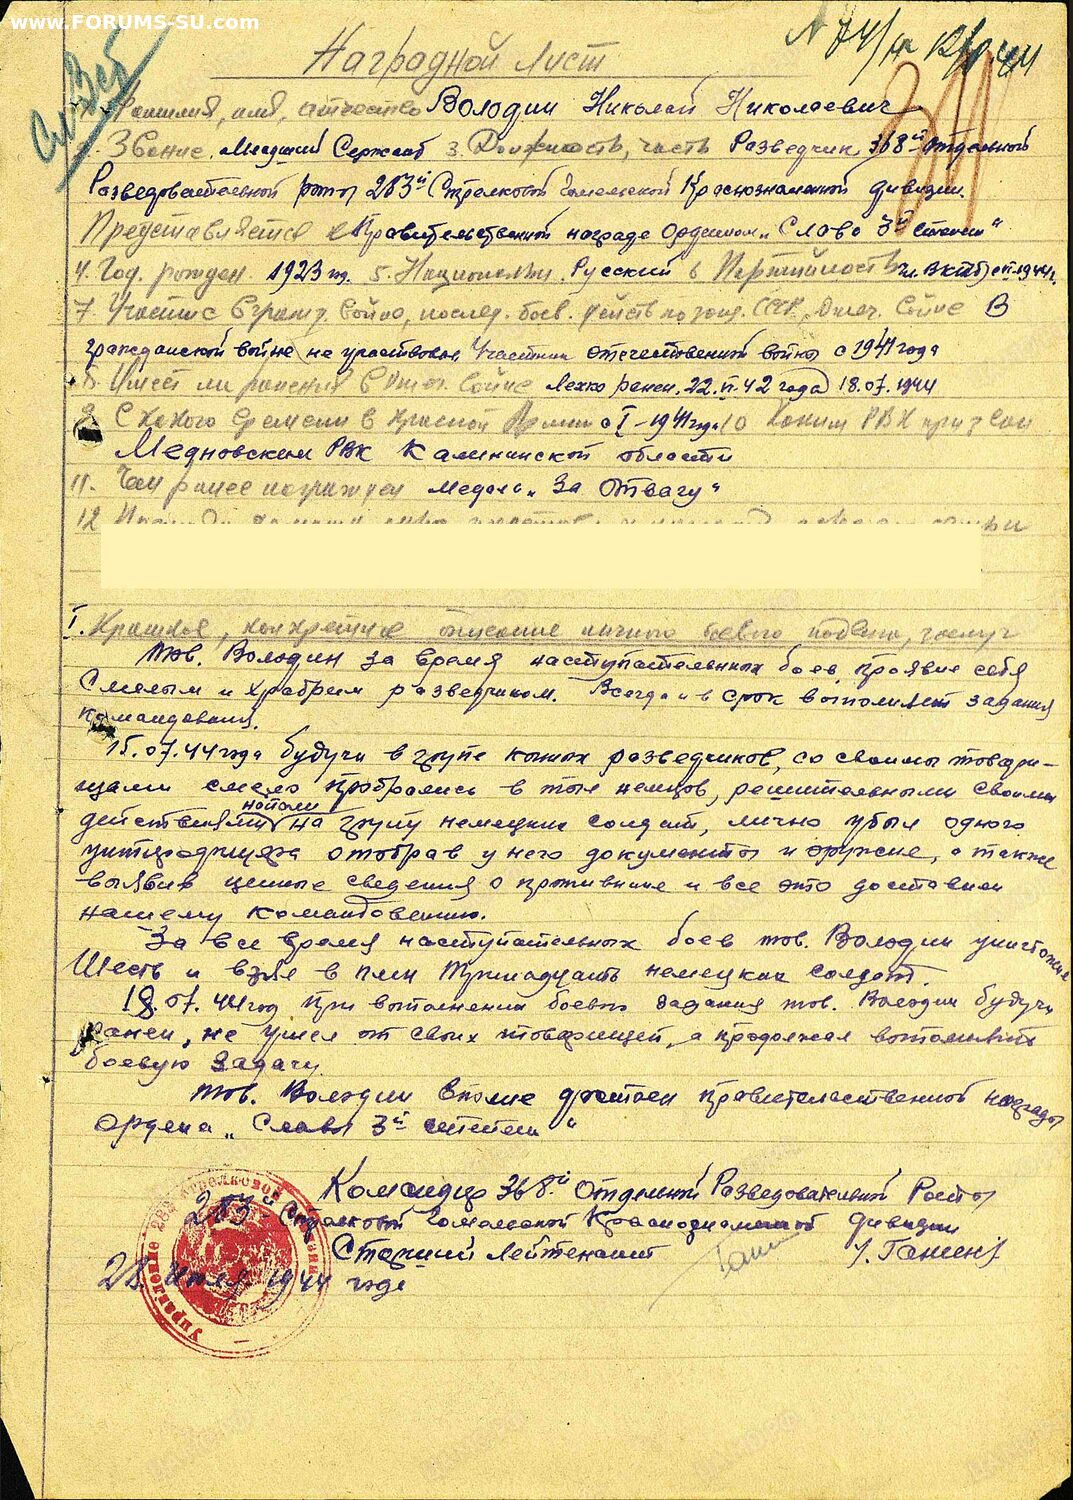 www.FORUMS-SU.com
Наградной лист
Фамилия, имя, отчество Володин Николай Николаевич
2. Звание. Младший Сержант 3. Должность, часть Разведчик 368й отдельной
Разведовательной роты 283й Стрелковой Гомельской Краснознаменной дивизии.
Представляется к Правительственной награде Орденом „Слава 3й степени"
4. Год. рожден. 1923 год. 5. Национальн. Русский 6 Партийность чл. ВКП(б) с 1944г.
7. Участие в гражд. войне, послед. боев. действ по защ. СССР, Отеч. войне В
гражданской войне не участвовал Участник отечественной войны с 1941 года
8. Имеет ли ранения в Отеч. войне Легко ранен. 22.II.42 года) 18.07.1944
9. С какого времени в Красной Армии с I-1941 года 10 Каким РВК призван
Медновским РВК Калининской области
11. Чем ранее награжден медаль „За Отвагу"
12
I. Краткое, конкретное описание личного боевого подвига, заслуг
Тов. Володин за время наступательных боев, проявил себя
Смелым и храбрым разведчиком. Всегда и в срок выполняет задания
командования.
15.07.44 года будучи в групе конных разведчиков, со своими товари-
щами смело пробрались в тыл немцов, решительными своими
действиями напали на групу немецких солдат, лично убил одного
унтерофицера отобрав у него документы и оружие, а также
выявив ценные сведения о противнике и все это доставили
нашему командованию.
За все время наступательных боев тов. Володин уничтожил
Шесть и взял в плен Тринадцать немецких солдат.
18.07.44 год при выполнении боевого задания тов. Володин будучи
ранен, не ушел от своих товарищей, а продолжал выполнять
боевую задачу.
тов. Володин вполне достоен правительственной награды
ордена „Слава 3й степени"
Командир 368й Отдельной Разведовательной Роты
283й Стрелковой Гомельской Краснознаменной дивизии
Старший Лейтенант
28. Июля 1944 года